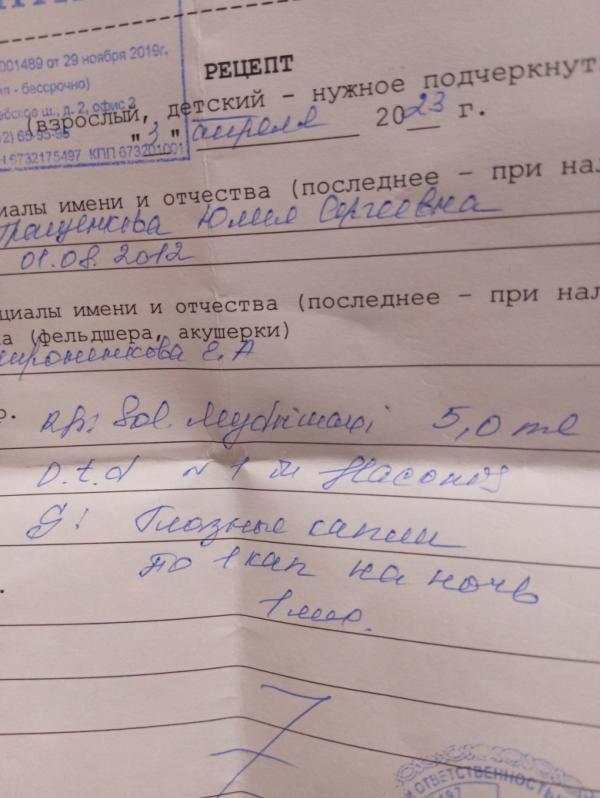 001489 от 29 ноября 2019г.
- бессрочно)
ш., д. 2, офис 2
6732175497 КПП 673201001
РЕЦЕПТ
(взрослый, детский - нужное подчеркнут
"3" апреля 2023 г.
циалы имени и отчества (последнее - при нал
Юлия Сергеевна
01.08.2012
циалы имени и отчества (последнее - при нал
а (фельдшера, акушерки)
Е.А
р. Rp: Sol. 5,0 ml
D.t.d N 1
S: Глазные капли
по 1 кап на ночь
1
ОТВЕТСТВЕННОСТЬЮ